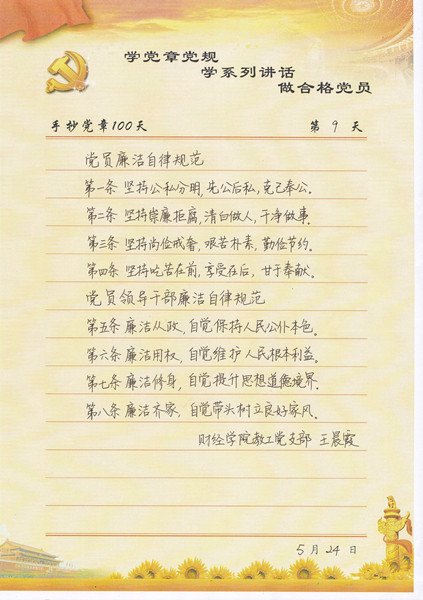 学党章党规
学系列讲话
做合格党员
手抄党章100天 第 9 天
党员廉洁自律规范
第一条 坚持公私分明,先公后私,克己奉公。
第二条 坚持崇廉拒腐,清白做人,干净做事。
第三条 坚持尚俭戒奢,艰苦朴素,勤俭节约。
第四条 坚持吃苦在前,享受在后,甘于奉献。
党员领导干部廉洁自律规范
第五条 廉洁从政,自觉保持人民公仆本色。
第六条 廉洁用权,自觉维护人民根本利益。
第七条 廉洁修身,自觉提升思想道德境界。
第八条 廉洁齐家,自觉带头树立良好家风。
财经学院教工党支部 王晨霞
5 月 24 日